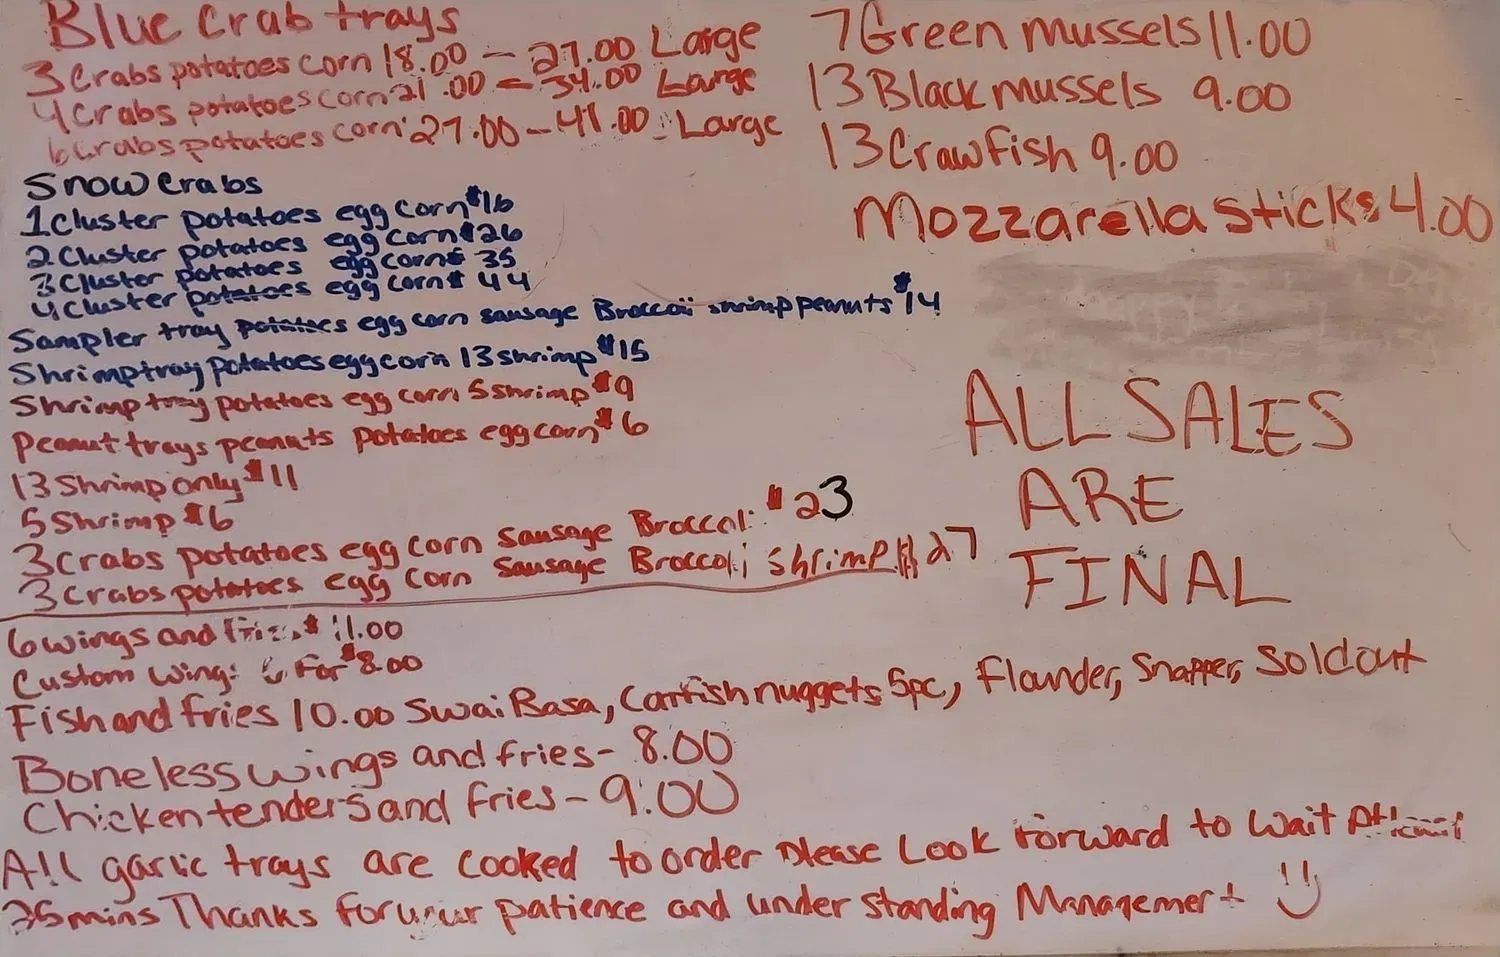 Blue Crab trays
3 Crabs potatoes corn 18.00 - 27.00 Large
4 Crabs potatoes corn 21.00 - 34.00 Large
6 Crabs potatoes corn 27.00 - 41.00 Large
Snow Crabs
1 Cluster potatoes egg corn $16
2 Cluster potatoes egg corn $26
3 Cluster potatoes egg corn $35
4 Cluster potatoes egg corn $44
Sampler tray potatoes egg corn sausage Broccoli shrimp peanuts $14
Shrimp tray potatoes egg corn 13 shrimp $15
Shrimp tray potatoes egg corn 5 shrimp $9
Peanut trays peanuts potatoes egg corn $6
13 Shrimp only $11
5 Shrimp $6
3 crabs potatoes egg corn Sausage Broccoli $23
3 crabs potatoes egg corn Sausage Broccoli Shrimp $27
6 wings and fries $11.00
Custom Wings 6 For $8.00
Fish and fries 10.00 Swai Basa, Catfish nuggets 5pc, Flounder, Snapper, Sold out
Boneless wings and fries - 8.00
Chicken tenders and fries - 9.00
All garlic trays are cooked to order please Look forward to wait At least
35 mins Thanks for your patience and understanding Management
7 Green mussels 11.00
13 Black mussels 9.00
13 Crawfish 9.00
Mozzarella sticks 4.00
ALL SALES
ARE
FINAL